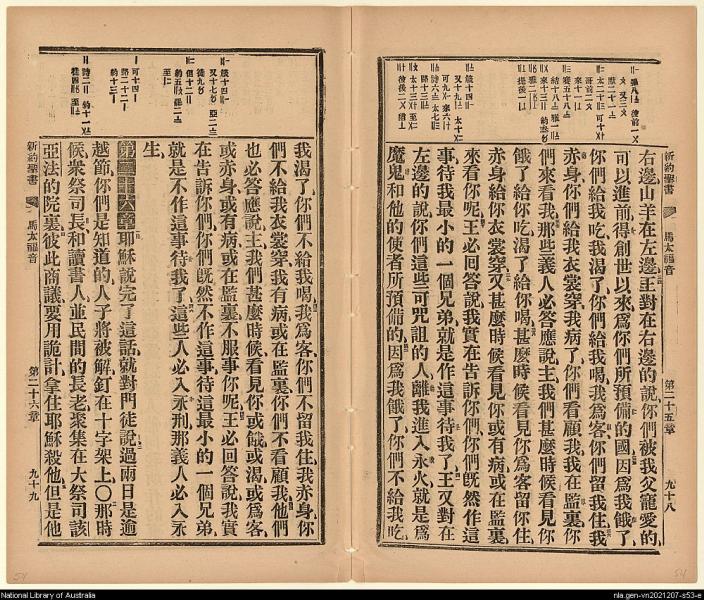 新約聖書
馬太福音
第二十五章
九十八
右邊山羊在左邊王對在右邊的說你們被我父寵愛的
可以進前得創世以來爲你們所預備的國因爲我餓了
你們給我吃我渴了你們給我喝我爲客你們留我住我
赤身你們給我衣裳穿我病了你們看顧我我在監裏你
們來看我那些義人必答應說主我們甚麼時候看見你
餓了給你吃渴了給你喝甚麼時候看見你爲客留你住
赤身給你衣裳穿又甚麼時候看見你或有病或在監裏
來看你呢王必回答說我實在告訴你們你們旣然作這
事待我最小的一個兄弟就是作這事待我了王又對在
左邊的說你們這些可咒詛的人離我進入永火就是爲
魔鬼和他的使者所預備的因爲我餓了你們不給我吃
我渴了你們不給我喝我爲客你們不留我住我赤身你
們不給我衣裳穿我有病或在監裏你們不看顧我他們
也必答應說主我們甚麼時候看見你或餓或渴或爲客
或赤身或有病或在監裏不服事你呢王必回答說我實
在告訴你們你們旣然不作這事待這最小的一個兄弟
就是不作這事待我了這些人必入永刑那義人必入永
生
第二十六章耶穌說完了這話就對門徒說過兩日是逾
越節你們是知道的人子將被解釘在十字架上〇那時
候衆祭司長和讀書人並民間的長老聚集在大祭司該
亞法的院裏彼此商議要用詭計拿住耶穌殺他但是他
新約聖書
馬太福音
第二十六章
九十九
National Library of Australia
nla.gen-vn2021207-s53-e